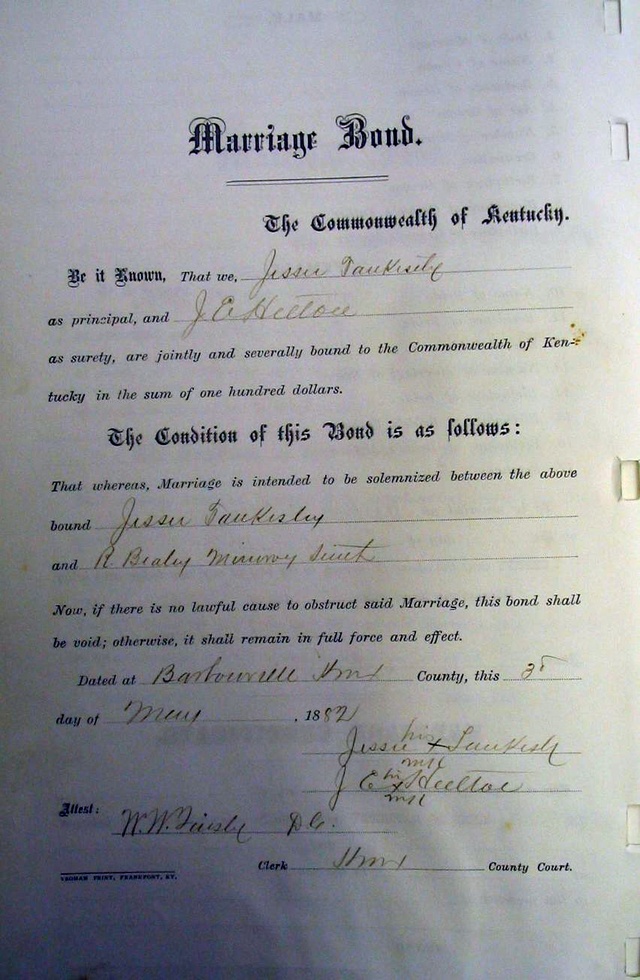 Marriage Bond.
The Commonwealth of Kentucky.
Be it Known, That we, Jessee Tankesly
as principal, and J E Helton
as surety, are jointly and severally bound to the Commonwealth of Ken-
tucky in the sum of one hundred dollars.
The Condition of this Bond is as follows:
That whereas, Marriage is intended to be solemnized between the above
bound Jessee Tankesley
and R
Now, if there is no lawful cause to obstruct said Marriage, this bond shall
be void; otherwise, it shall remain in full force and effect.
Dated at Barbourville Knox County, this 3
day of May, 1882
his
Jessee x Tankesly
mrk
his
J E x Helton
mrk
Attest:
W. W. Tinsly D C.
Clerk Knox County Court.
YEOMAN PRINT, FRANKFORT, KY.